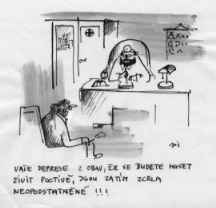 VAŠE DEPRESE Z OBAV, ŽE SE BUDETE MUSET
ŽIVIT POCTIVĚ, JSOU ZATÍM ZCELA
NEOPODSTATNĚNÉ !!!